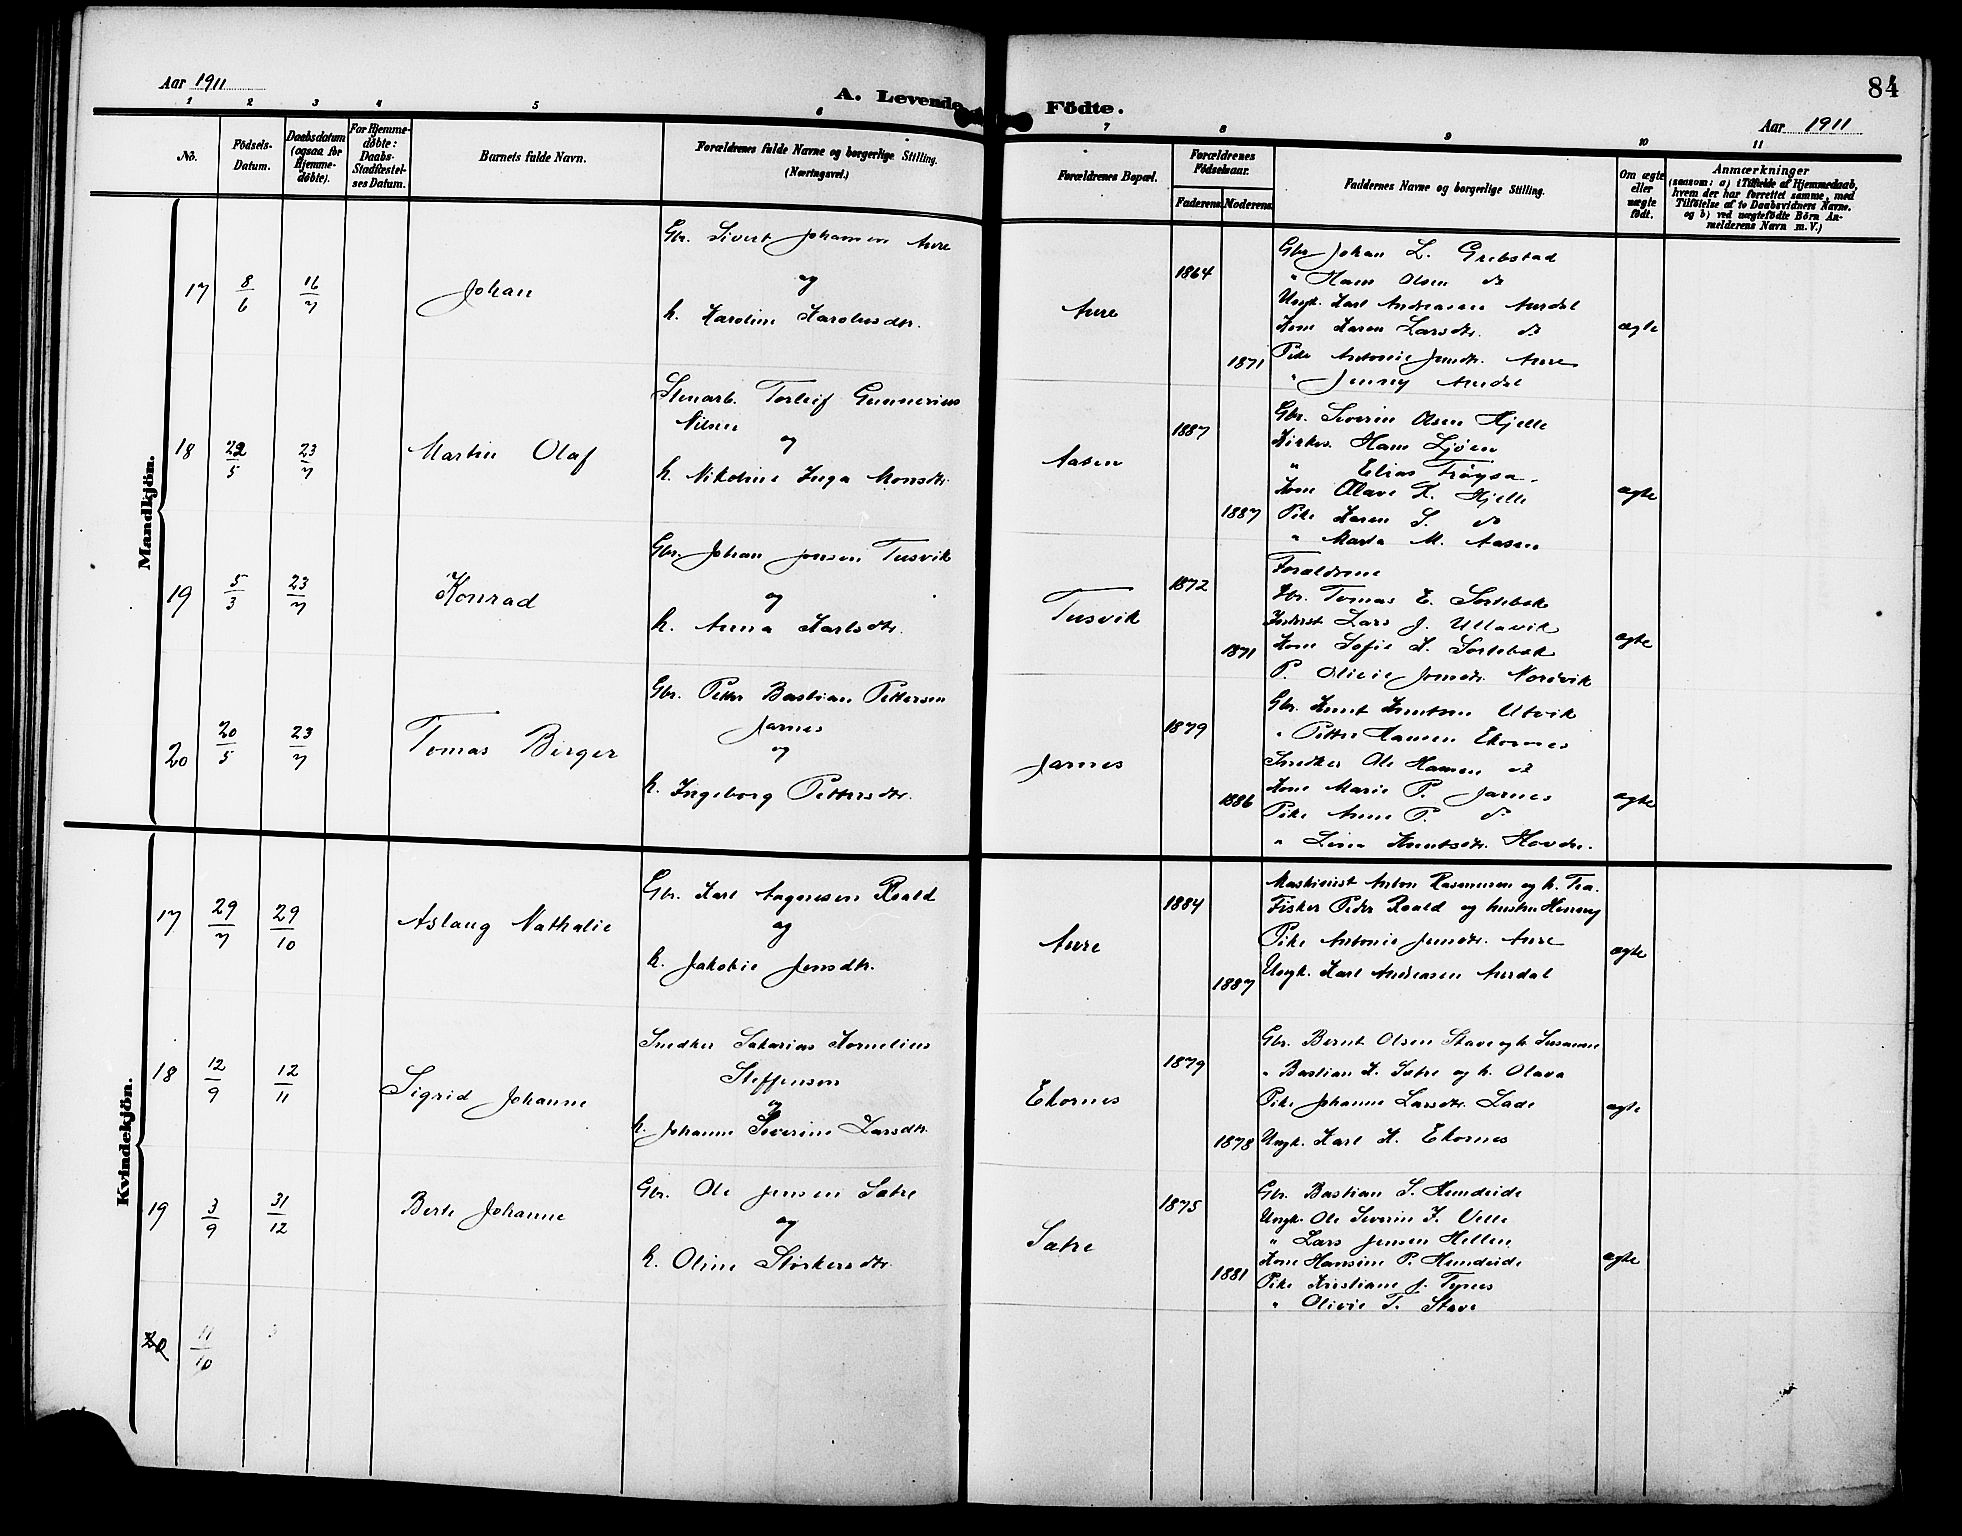 Aar 1911
A. Levende Födte.
84
Aar 1911
1 2 3 4 5 6 7 8 9 10 11
No.
Födsels-
Datum.
Daabsdatum
(ogsaa for
Hjemme-
døbte).
For Hjemme-
døbte:
Daabs-
Stadfæstel-
ses Datum.
Barnets fulde Navn.
Forældrenes fulde Navne og borgerlige Stilling.
(Næringsvei.)
Forældrenes Bopæl.
Forældrenes
Födselsaar.
Faderens. Moderens.
Faddernes Navne og borgerlige Stilling.
Om ægte
eller
uægte
födt.
Anmærkninger
(saasom: a) i Tilfælde af Hjemmedaab,
hvem der har forrettet samme, med
Tilføielse af to Daabsvidners Navne.
og b) ved uægtefödte Börn An-
melderens Navn m. V.)
Mandkjön.
17 8/6 16/7 Johan
Gbr. Sivert Johansen Aure
og
h. Karoline Karolusdtr.
Aure
1864
1871
Gbr Johan L. Grebstad
" Hans Olsen do
Ungk. Karl Andreasen Aurdal
Kone Karen Larsdtr. do
Pike Antonie Jensdtr. Aure
" Jenny Aurdal
ægte
18 22/5 23/7 Martin Olaf
Stenarb. Torleif Gunnerius
Nilsen
og
h. Nikoline Inga Monsdtr.
Aasen
1887
1887
Gbr. Severin Olsen Hjelle
Kirkes. Hans Ljøen
" Elias Trøysa
Kone Olave K. Hjelle
Pike Karen S. do
" Marta M. Aasen
ægte
19 5/3 23/7 Konrad
Gbr. Johan Jonsen Tusvik
og
h. Anna Karlsdtr.
Tusvik
1872
1871
Forældrene
Gbr. Tomas E. Sortebak
Inderst Lars J. Ullavik
Kone Sofie K. Sortebak
P. Olivie Jonsdtr. Nordvik
ægte
20 20/5 23/7 Tomas Birger
Gbr. Petter Bastian Pettersen
Jarnes
og
h. Ingeborg Pettersdtr.
Jarnes
1879
1886
Gbr. Knut Knutsen Utvik
" Petter Hansen Ekornes
Snedker Ole Hansen do
Kone Marie P. Jarnes
Pike Anne P. do
" Lina Knutsdtr. Hovde.
ægte
Kvindekjön.
17 29/7 29/10 Aslaug Nathalie
Gbr. Karl Aagesen Roald
og
h. Jakobie Jensdtr.
Aure
1884
1887
Maskinist Anton Rasmussen og h. Tea.
Fisker Peder Roald og hustru Henny
Pike Antonie Jensdtr. Aure
Ungk. Karl Andreasen Aurdal
ægte
18 12/9 12/11 Sigrid Johanne
Snedker Sakarias Kornelius
Steffensen
og
h. Johanne Severine Larsdtr.
Ekornes
1879
1878
Gbr. Bernt Olsen Stave og h. Susanne
" Bastian K. Sætre og h. Olava
Pike Johanne Larsdtr. Lade
Ungk. Karl K. Ekornes
ægte
19 3/9 31/12 Berte Johanne
Gbr. Ole Jensen Sætre
og
h. Oline Størkersdtr.
Sætre
1875
1881
Gbr. Bastian S. Hundeide
Ungk. Ole Severin I. Velle
" Lars Jensen Hellen
Kone Hansine P. Hundeide
Pike Kristiane J. Tynes
" Olivie T. Stave
ægte
20 11/10 3